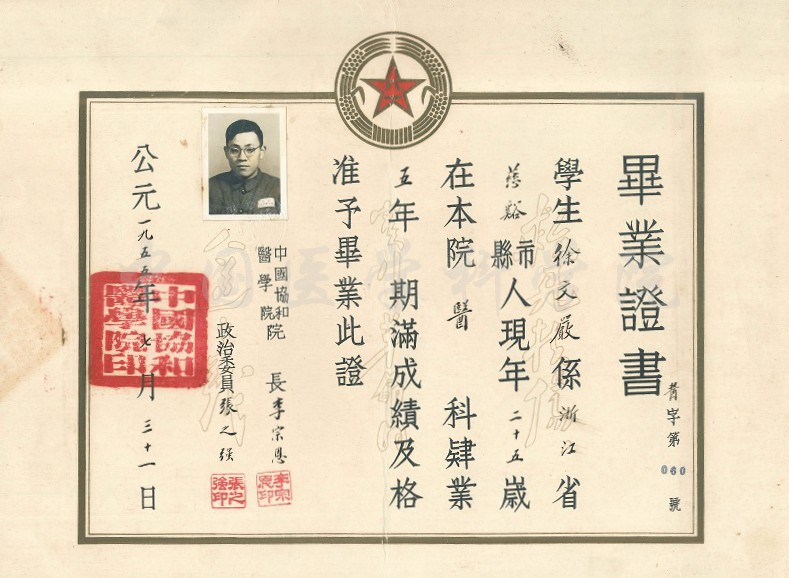 畢業證書
字第 號
學生徐文嚴係浙江省
慈谿市縣人現年二十五歲
在本院醫科肄業
五年期滿成績及格
准予畢業此證
中國協和醫學院院長李宗恩
李宗恩印
政治委員張之强
張之強印
公元一九五五年七月三十一日
中國協和醫學院印
中国医学科学院